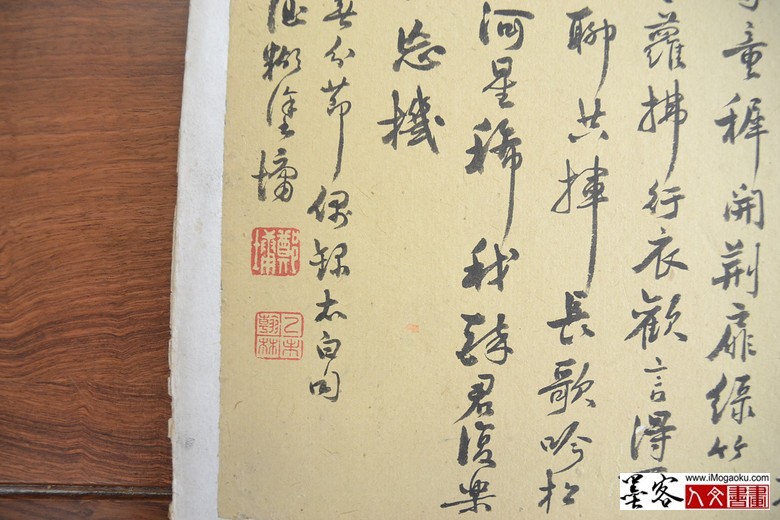 童穉開荆扉緑竹
蘿拂行衣歡言得
聊共揮長歌吟松
河星稀我醉君復樂
忘機
分節偶録太白句
糊塗墉
鄭墉
乙未翰林
墨客 www.iMogaoku.com
人文書畫